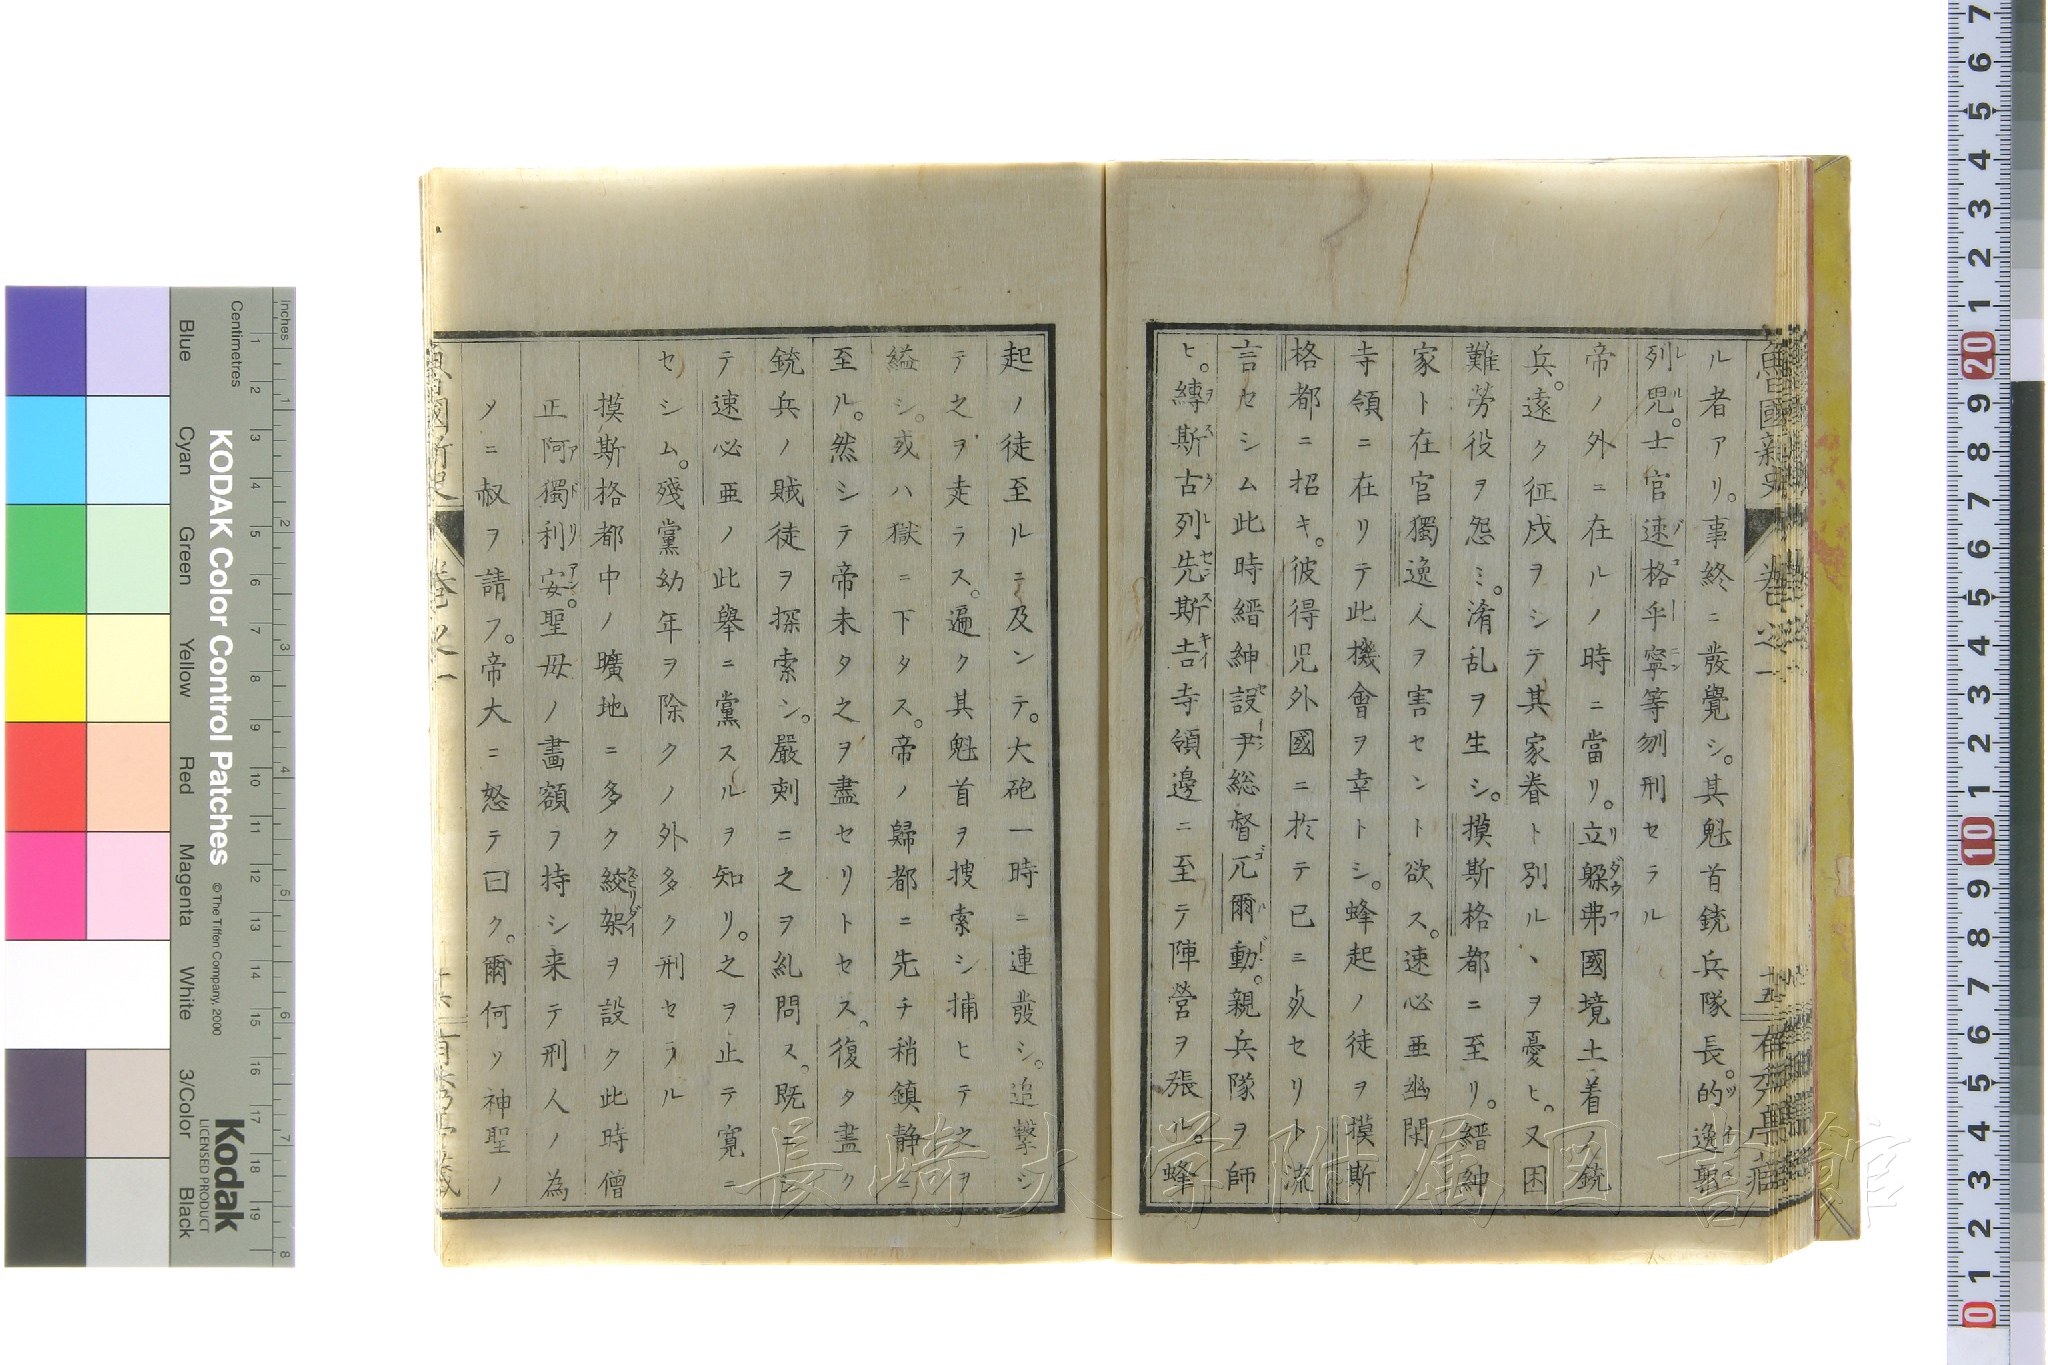 魯國新史 卷之一
ル者アリ。事終ニ發覺シ。其魁首銃兵隊長。的逸
列児。士官速格乎寧等刎刑セラル
帝ノ外ニ在ルノ時ニ當リ。立躱弗國境土着ノ銃
兵。遠ク征戍ヲシテ其家眷ト別ルヽヲ憂ヒ。又困
難勞役ヲ怨ミ。淆乱ヲ生シ。摸斯格都ニ至リ。縉紳
家ト在官獨逸人ヲ害セント欲ス。速必亜幽閉ノ
寺領ニ在リテ此機會ヲ幸トシ。蜂起ノ徒ヲ摸斯
格都ニ招キ。彼得児外國ニ於テ已ニ死セリト流
言セシム此時縉紳設尹総督兀爾動。親兵隊ヲ師
ヒ。縳斯古列先斯吉寺領邊ニ至テ陣營ヲ張ル。蜂
起ノ徒至ルニ及ンテ。大砲一時ニ連發シ。追撃シ
テ之ヲ走ラス。遍ク其魁首ヲ捜索シ捕ヒテ之ヲ
縊シ。或ハ獄ニ下タス。帝ノ歸都ニ先チ稍鎮静ニ
至ル。然シテ帝未タ之ヲ盡セリトセス。復タ盡ク
銃兵ノ賊徒ヲ探索シ。嚴刺ニ之ヲ糺問ス。既ニシ
テ速必亜ノ此舉ニ黨スルヲ知リ。之ヲ止テ寛ニ
セシム。殘黨幼年ヲ除クノ外多ク刑セラル
摸斯格都中ノ曠地ニ多ク絞架ヲ設ク此時僧
正阿獨利安。聖母ノ畫額ヲ持シ来テ刑人ノ為
メニ赦ヲ請フ。帝大ニ怒テ曰ク。爾何ソ神聖ノ
魯國新史 卷之一
長崎大学附属図書館
KODAK Color Control Patches
© The Tiffen Company, 2000
Kodak
LICENSED PRODUCT
Centimetres
Inches
Blue
Cyan
Green
Yellow
Red
Magenta
White
3/Color
Black